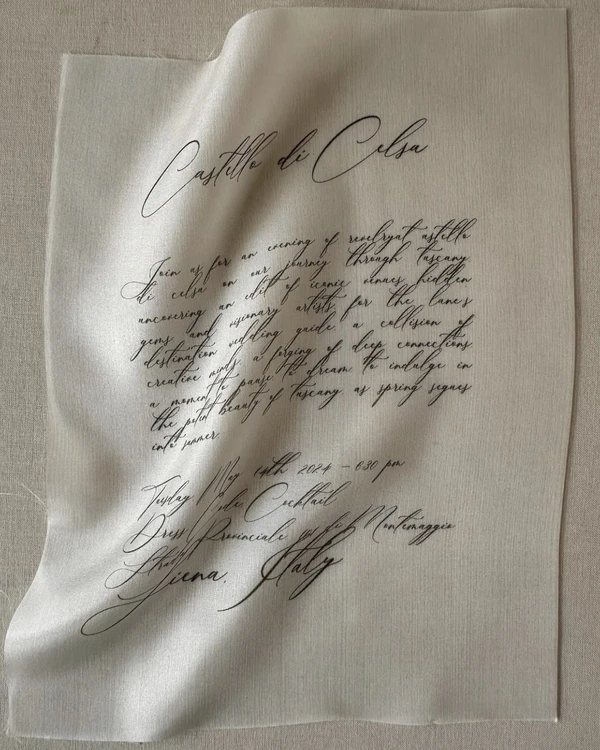 Castello di Celsa
Join us for an evening of revelryat astello
di celsa on our journey through tuscany
uncovering an edit of iconic venues hidden
gems and visionary artists for the lane's
destination wedding guide a collision of
creative minds. a forging of deep connections.
a moment to pause. to dream. to indulge in
the potent beauty of tuscany as spring segues
into summer.
Tuesday May 14th 2024 – 630 pm
Dress Code Cocktail
Strada Provinciale Montemaggio
Siena, Italy